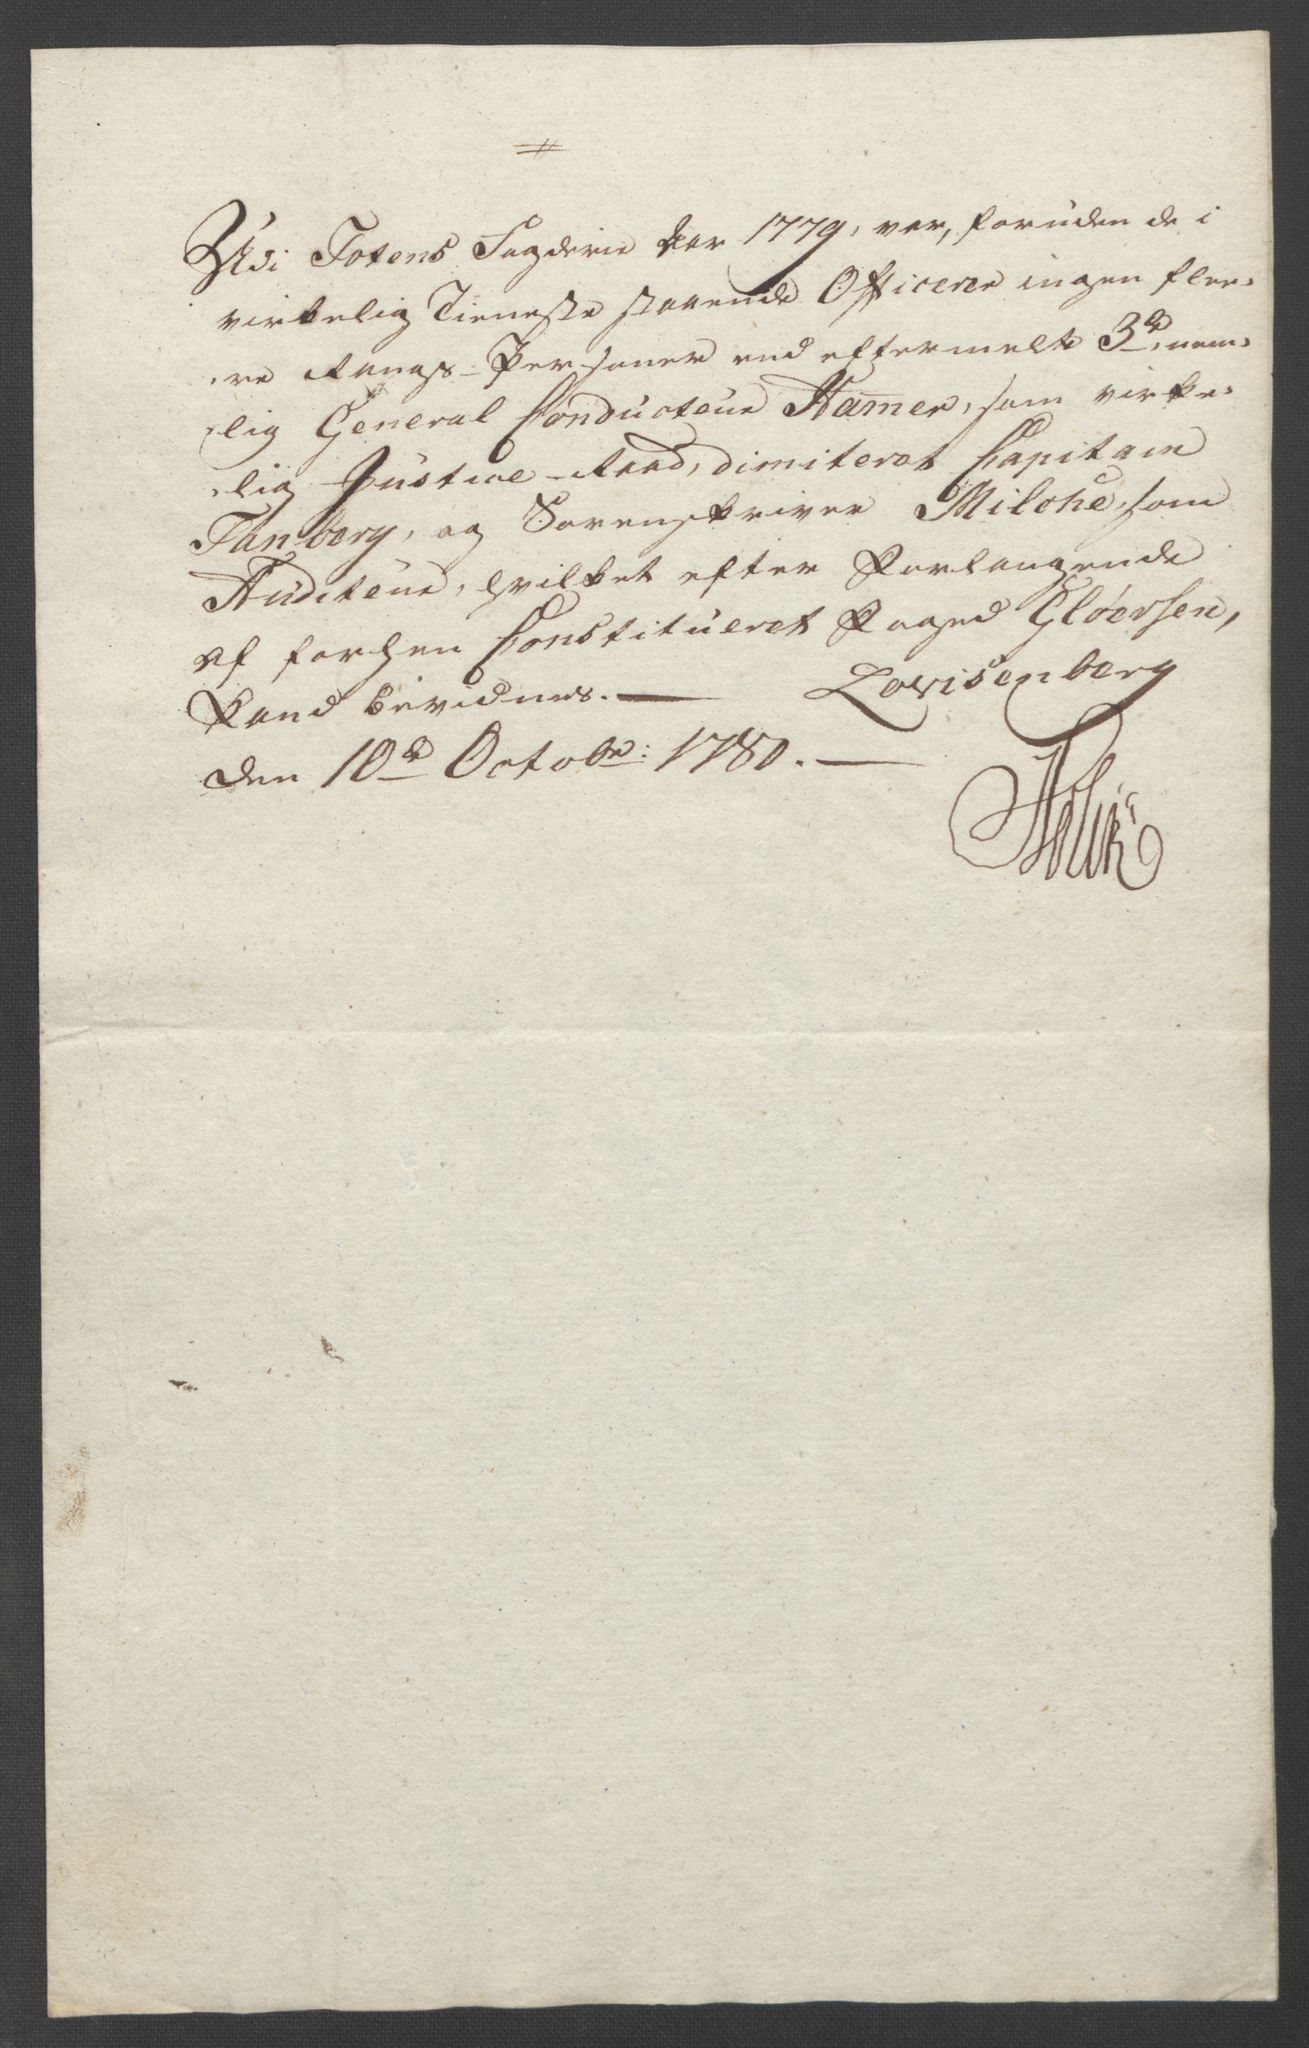 Udi Totens Fogderie for 1779, var, foruden de i
virkelig Tieneste staaende Officerer ingen flee-
re Rangs-Personer end eftermelte 3de, nem-
lig General Conducteur Hamer, som virke-
lig Justice-Raad, dimiteret Capitain
Tanberg, og Sorenskriver Milche, som
Auditeur, hvilket efter Forlangende
af forhen Constitueret Foged Gløersen,
Kand bevidnes. — Lovisenberg
den 10de Octobr: 1780. —